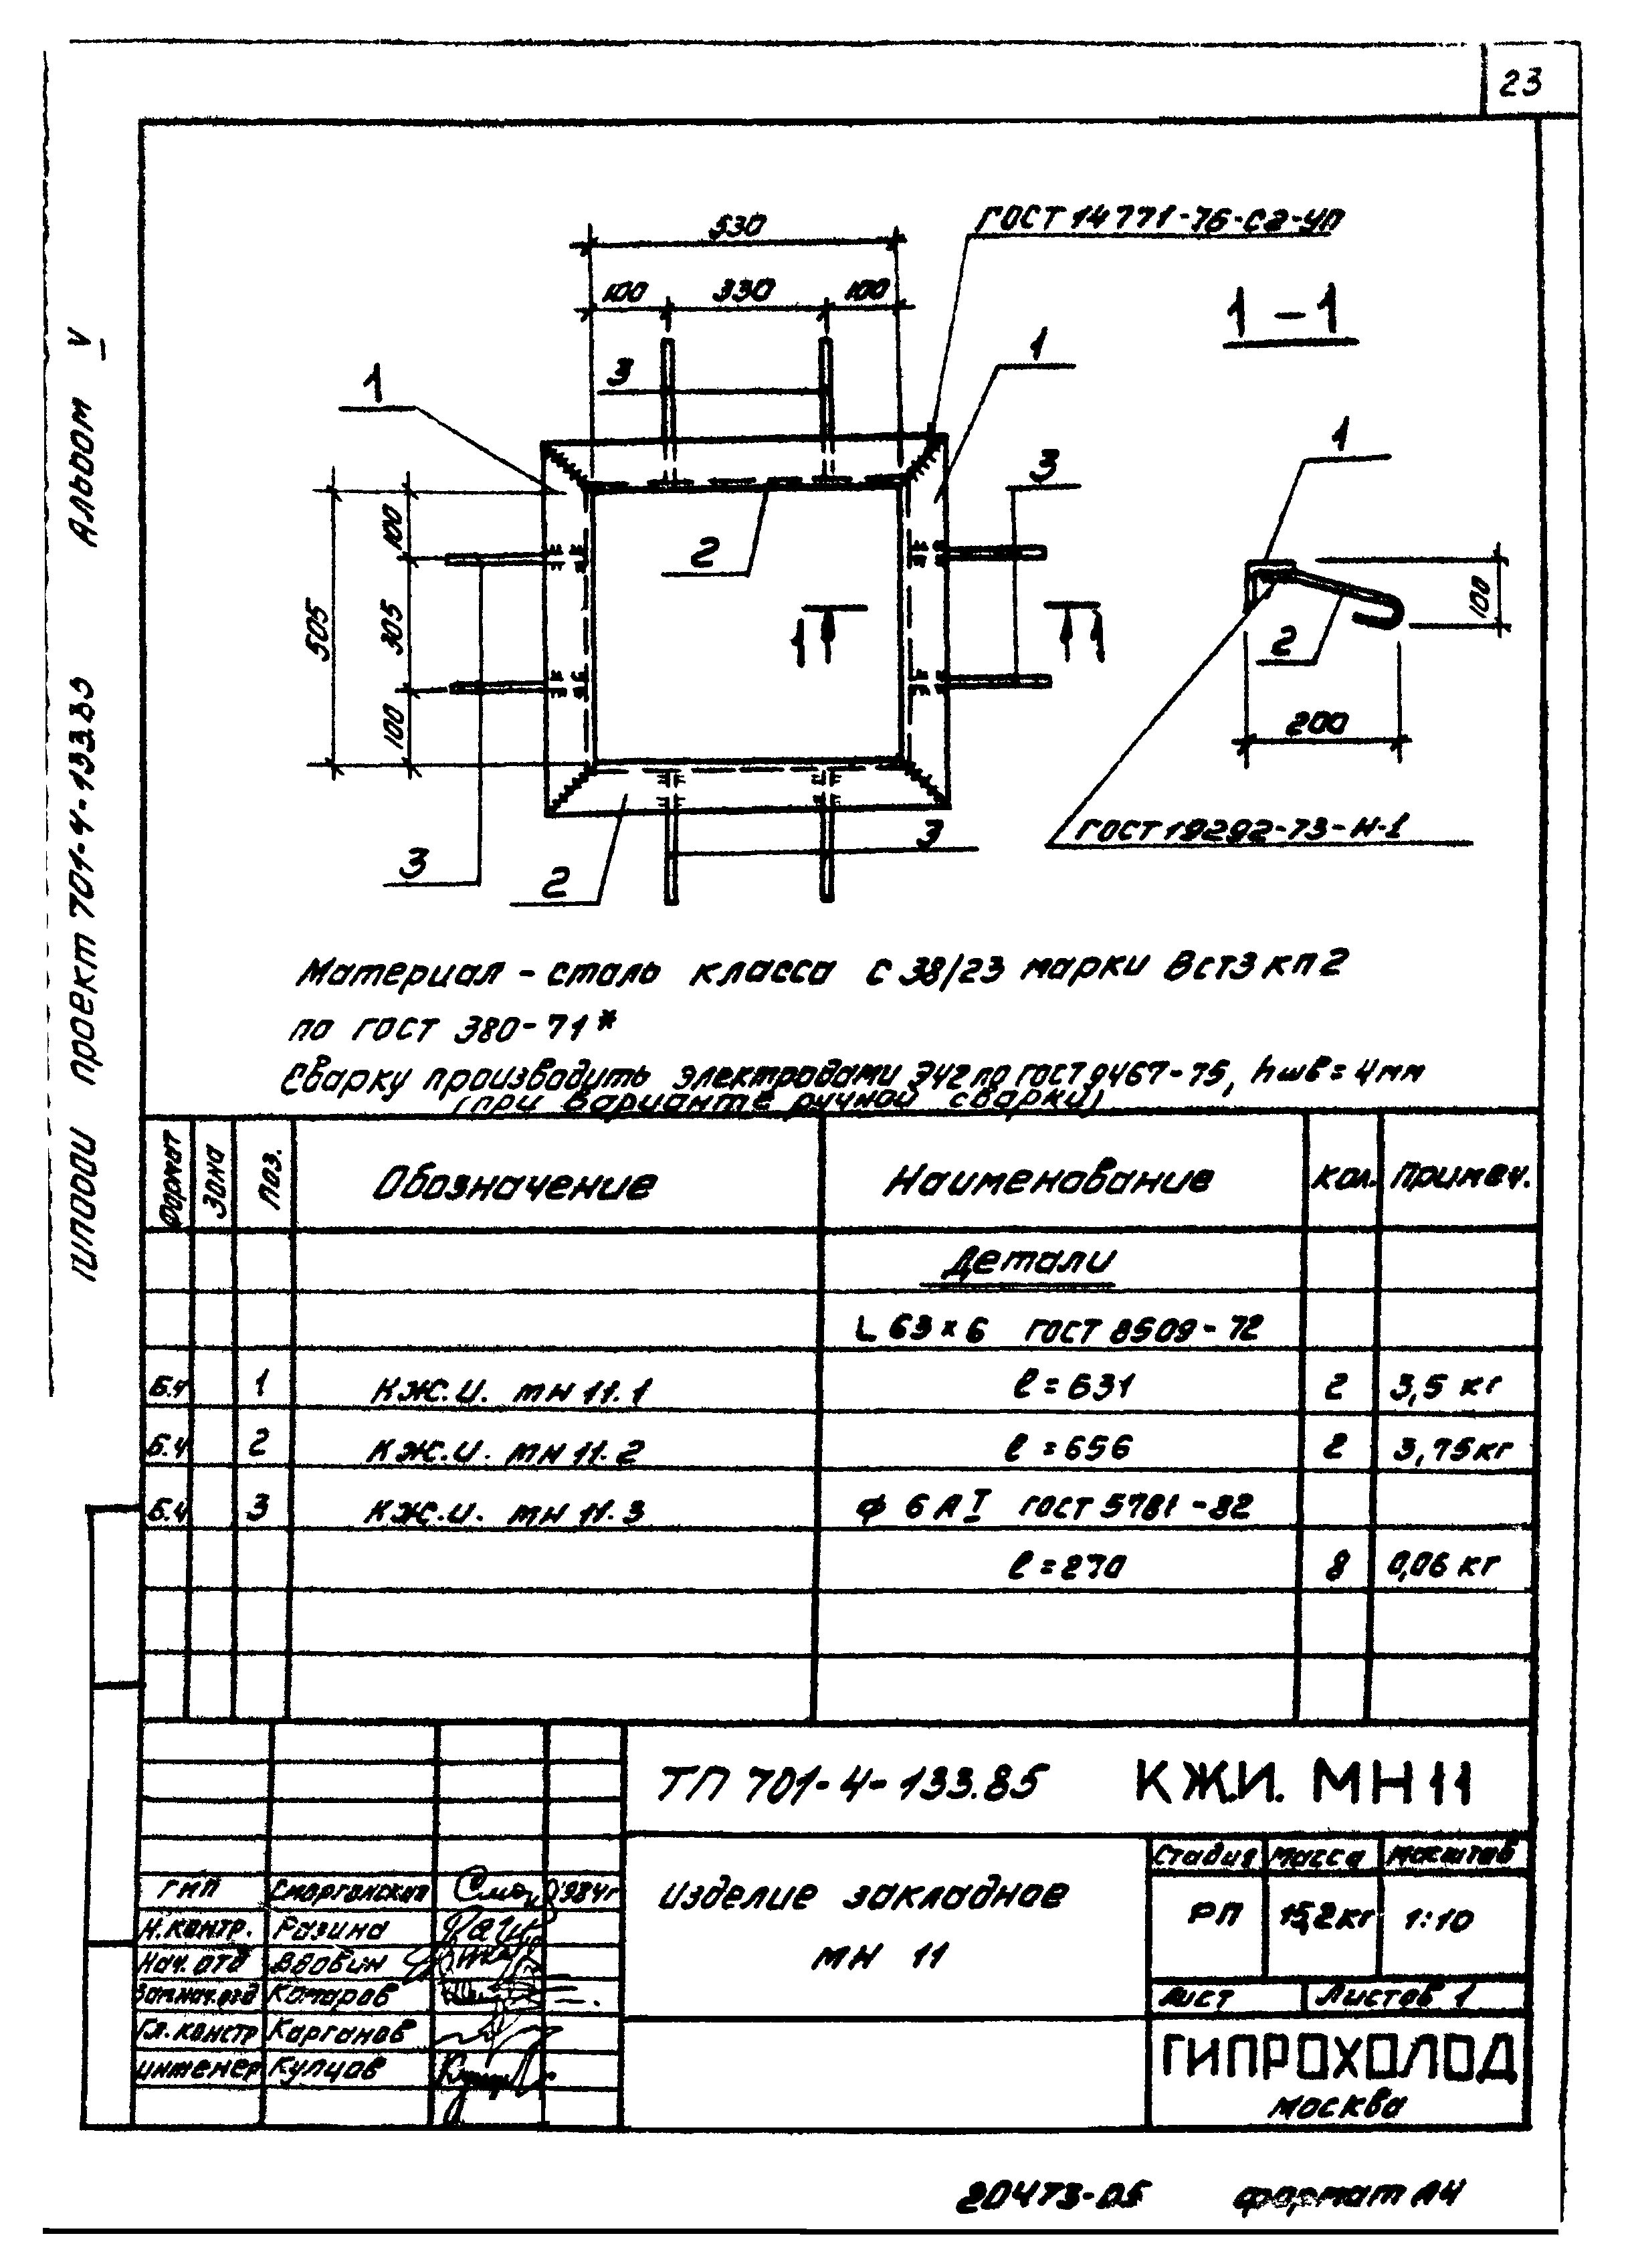 23
Альбом V
типовой проект 701-4-133.85
530
100 330 100
ГОСТ 14771-76-С2-УП
1-1
1
1
3
3
2
1
505
100
305
100
1 1
2
100
200
3
3
2
ГОСТ 19292-73-Н-1
Материал - сталь класса С 38/23 марки Вст3кп2
по ГОСТ 380-71*
Сварку производить электродами Э42 по ГОСТ 9467-75, hшв = 4мм
(при варианте ручной сварки)
Формат Зона Поз. Обозначение Наименование Кол. Примеч.
Детали
L 63×6 ГОСТ 8509-72
Б.ч 1 КЖ.И. МН 11.1 l = 631 2 3,5 кг
Б.ч 2 КЖ.И. МН 11.2 l = 656 2 3,75кг
Б.ч 3 КЖ.И. МН 11.3 ф 6 АI ГОСТ 5781-82
l = 270 8 0,06 кг
ТП 701-4-133.85 КЖ.И. МН 11
Изделие закладное
МН 11
Стадия Масса Масштаб
РП 15,2кг 1:10
Лист Листов 1
ГИП 1984г
Н.контр. Разина
Нач. отд Вдовин
Зам.нач.отд Комаров
Гл.констр Карганов
инженер Купцов
ГИПРОХОЛОД
Москва
20473-05 формат А4